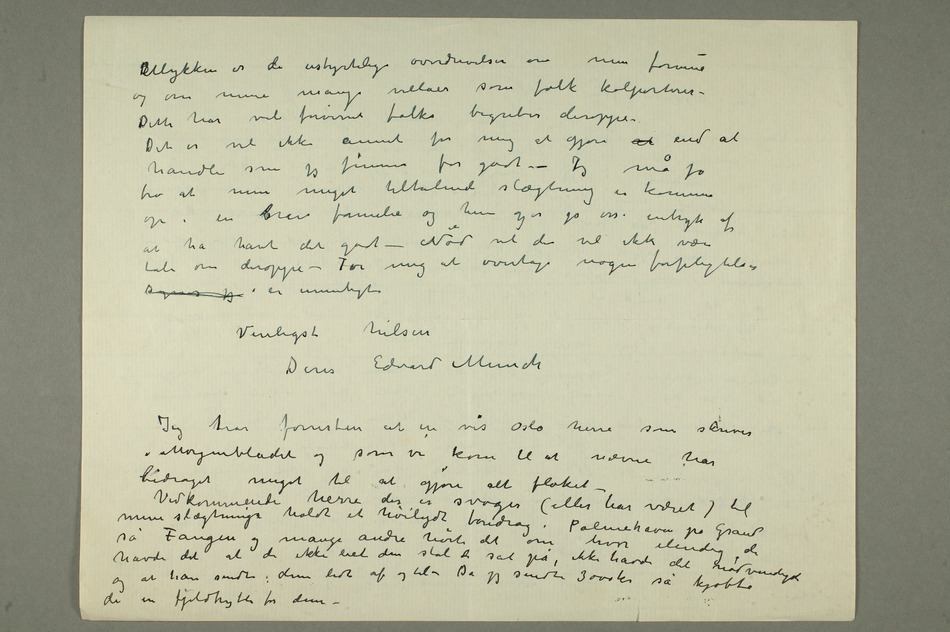 Ulykken er de ustyrtelige overdrivelser om min formue
og om mine mange villaer som folk kolporterer –
Dette har vel forvirret folks begreber deroppe –
Det er vel ikke annet for mig at gjøre at end at
handle som jeg finner for godt – Jeg må jo
tro at min meget tiltalende slægtning er kommen
op i en brav familie og hun gjør jo oss intryk af
at ha havt det godt – Nød vil der vel ikke være
tale om deroppe – For mig at overtage nogen forpligtelse
synes jeg er umuligt
Venligst hilsen
Deres Edvard Munch
Jeg tror forresten at en vis Oslo herre som skriver
i Morgenbladet og som vi kom til at nævne har
bidraget meget til at gjøre alt floket –
Vedkommende herre der er svoger (eller har været) til
mine slægtninge holdt et høilydt foredrag i Palmehaven på Grand
så Fangen og mange andre hørte det om hvor elendig de
havde det at de ikke en stol å sat på, ikke havde det nødvendigste
og at han sendte dem lidt af og til – Da jeg sendte 300 kr så kjøbte
de en fjeldhytte for dem –